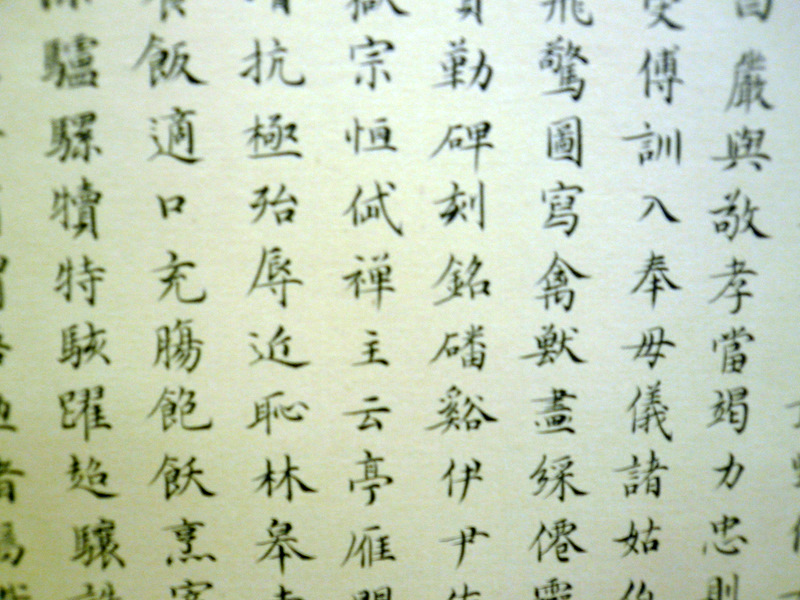 嚴與敬孝當竭力忠則
受傅訓入奉母儀諸姑伯
飛驚圖寫禽獸盡綵僊靈
實勤碑刻銘磻谿伊尹佐
嶽宗恒岱禪主云亭雁門
抗極殆辱近恥林皋幸
飯適口充腸飽飫烹宰
驢騾犢特駭躍超驤誅